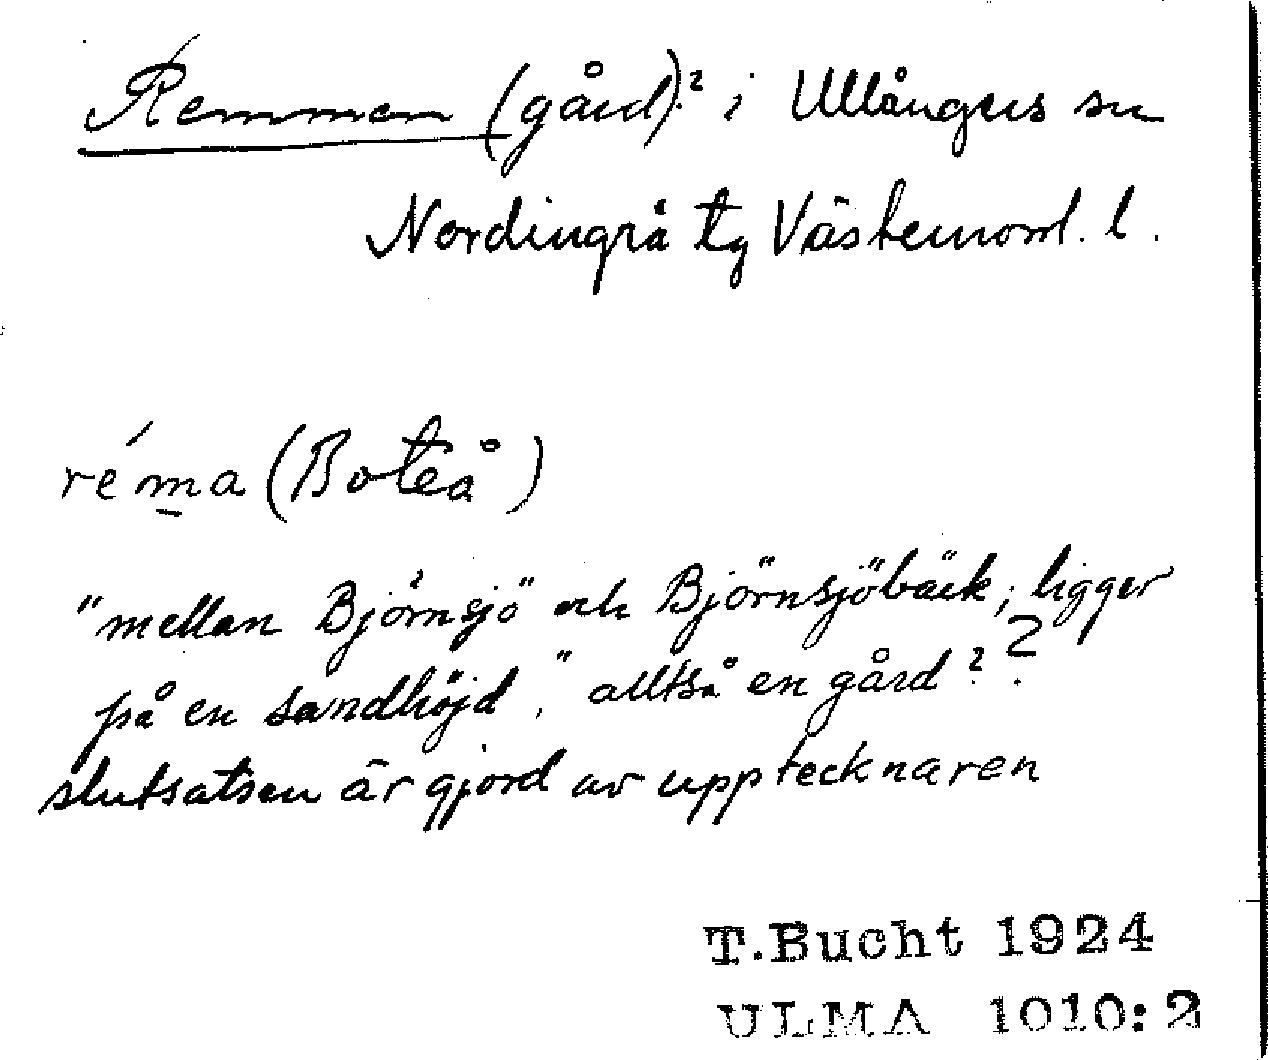 Remmen (gård)? i Ullångers sn
Nordingrå tg Västernorrl. l.
réma (Boteå)
"mellan Björnsjö" och Björnsjöbäck; ligger
på en sandhöjd," alltså en gård? ?
slutsatsen är gjord av upptecknaren
T.Bucht 1924
ULMA 1010:2